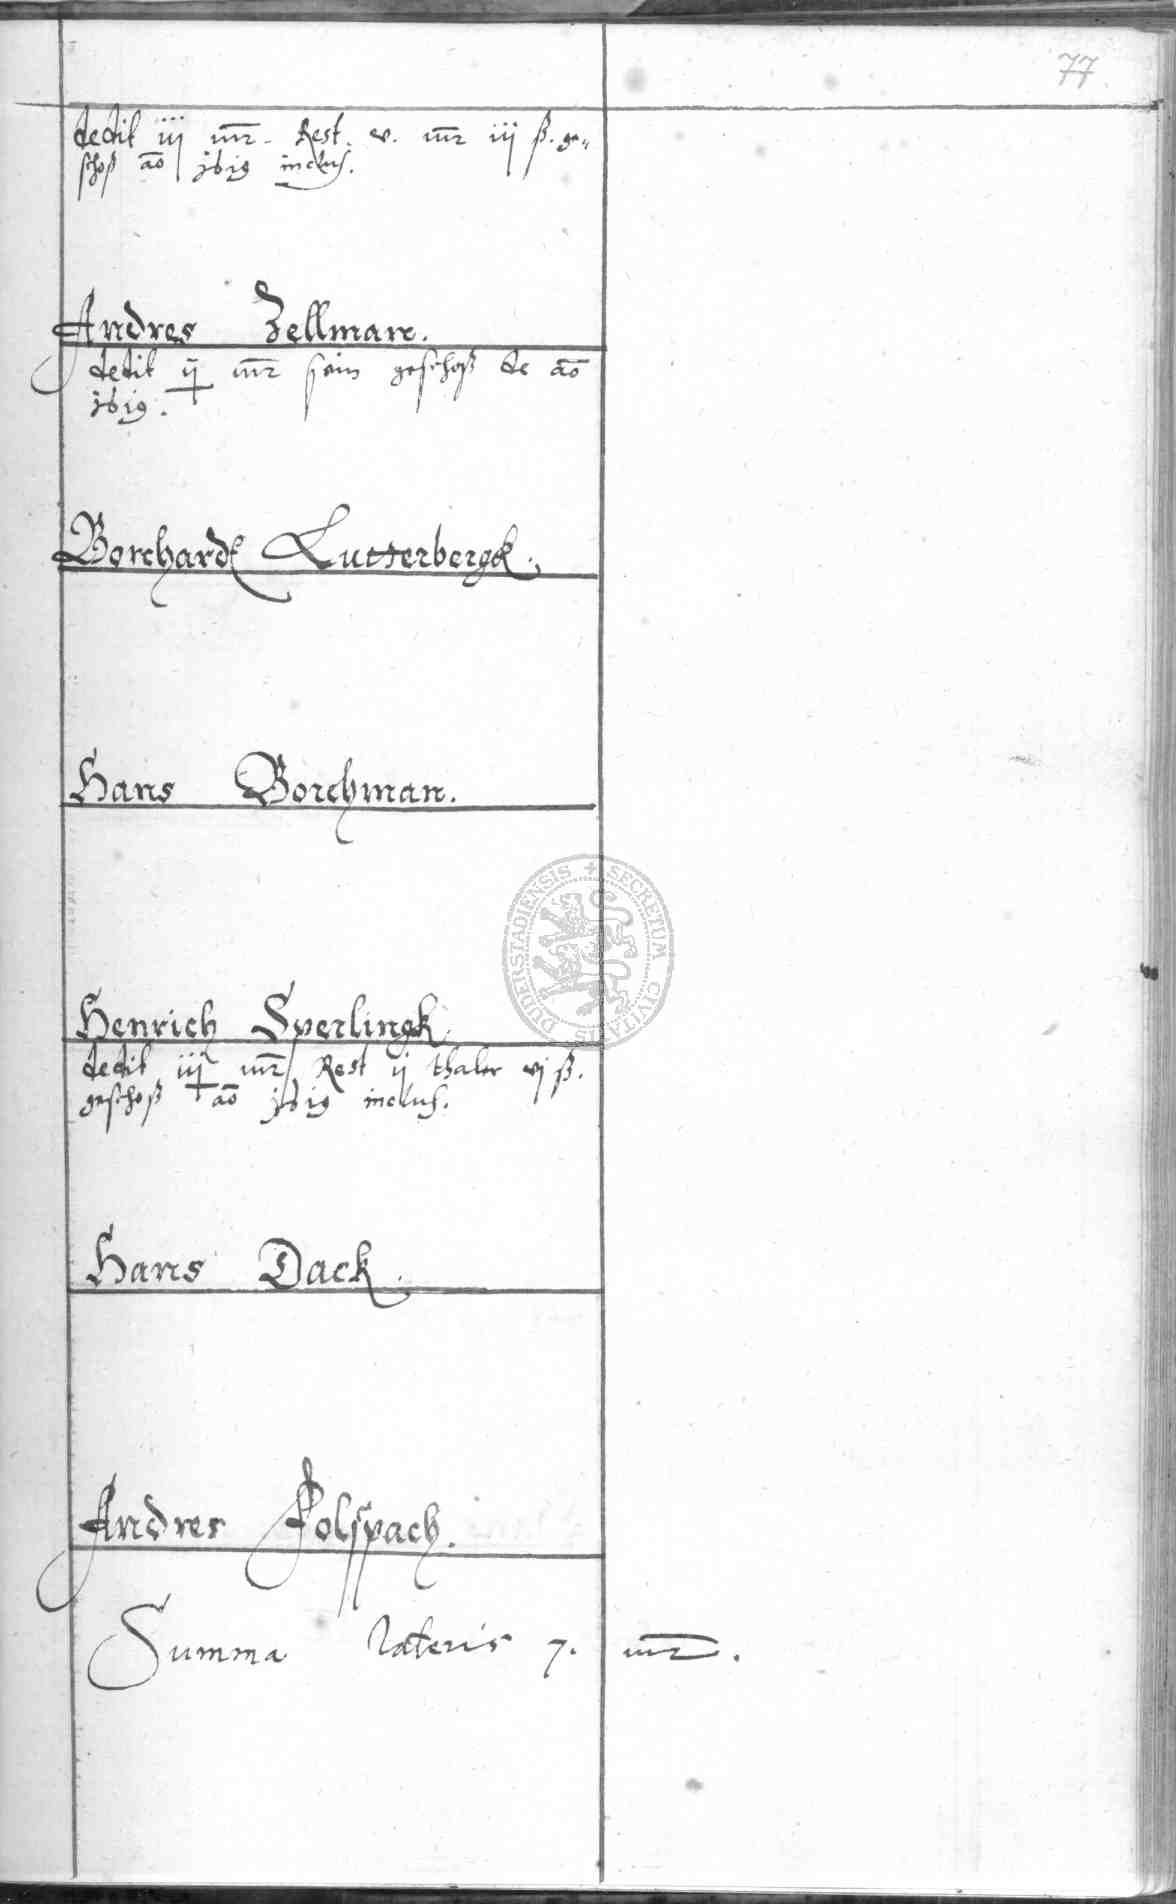 77
dedit iij mr. Rest. v. mr iij ß. ge„
schoß ao 1619 inclus.
Andres Zellman.
dedit ij mr sein geschoß de ao
1619.
Borchardt Lutterbergk.
Hans Borchman.
DUDERSTADIENSIS + SECRETUM CIVITATIS
Henrich Sperlingk.
dedit iij mr Rest ij thaler vj ß.
geschoß ao 1619 inclus.
Hans Dack.
Andres Polspach.
Summa lateris 7. mr.